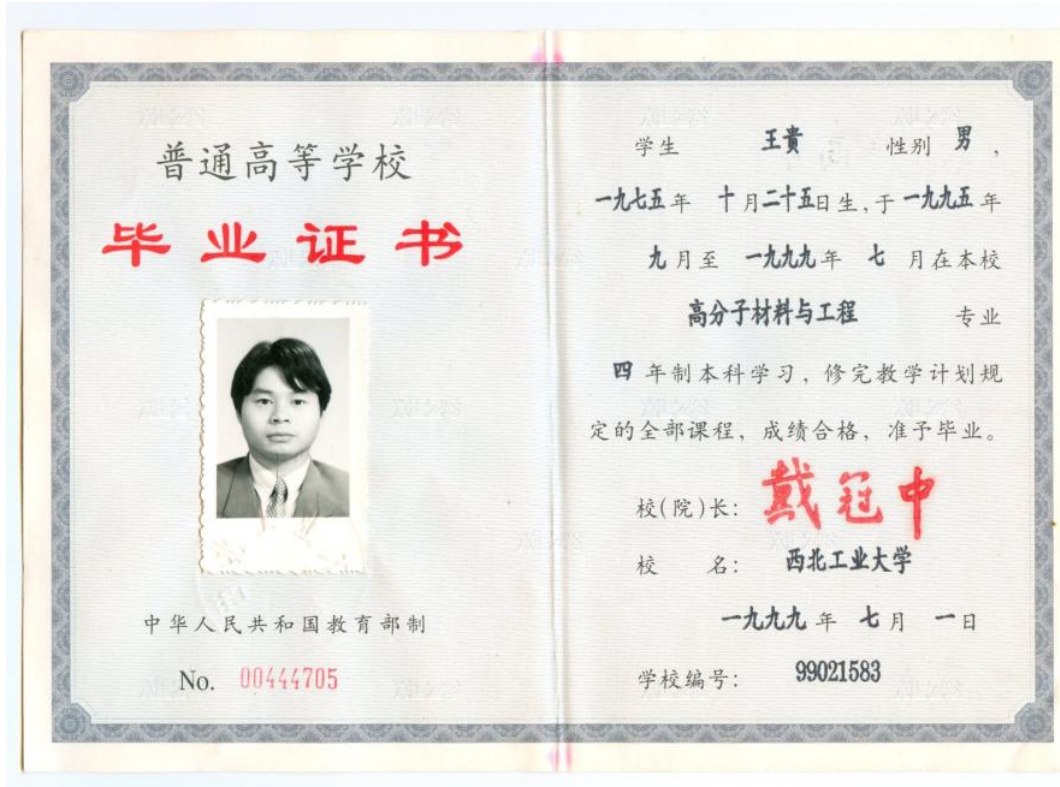 普通高等学校
毕业证书
中华人民共和国教育部制
No. 00444705
学生 王贵 性别 男，
一九七五年 十月二十五日生，于一九九五年
九月至 一九九九年 七 月在本校
高分子材料与工程 专业
四 年制本科学习，修完教学计划规
定的全部课程，成绩合格，准予毕业。
校(院)长：戴冠中
校 名：西北工业大学
一九九九年 七月 一日
学校编号：99021583